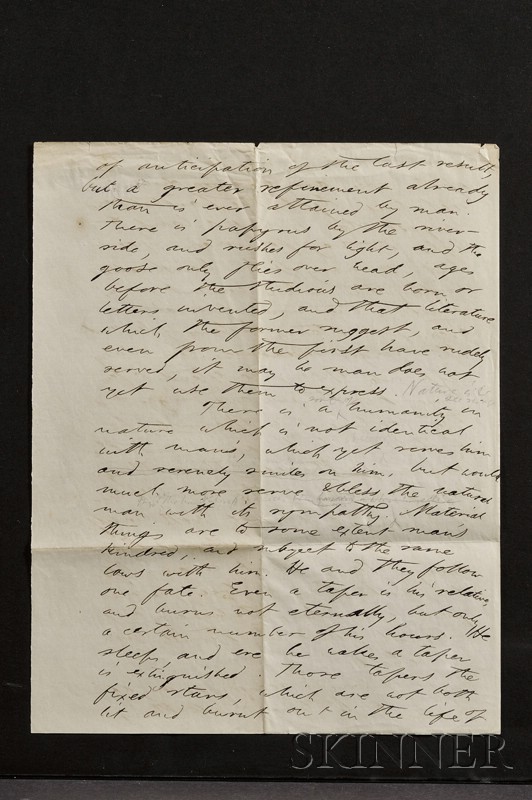 of anticipation of the last result,
but a greater refinement already
than is ever attained by man.
There is papyrus by the river-
side, and rushes for light, and the
goose only flies over head, ages
before the studious are born or
letters invented, and that literature
which the former suggest, and
even from the first have rudely
served, it may be man does not
yet use them to express. Nature
There is a humanity in
nature which is not identical
with mans, which yet serves him
and serenely smiles on him, but would
much more serve & bless the natural
man with its sympathy. Material
things are to some extent man's
kindred, and subject to the same
laws with him. He and they follow
one fate. Even a taper is his relative,
and burns not eternally, but only
a certain number of his hours. He
sleeps, and ere he wakes a taper
is extinguished. Those tapers the
fixed stars, which are not both
lit and burnt out in the life of
SKINNER